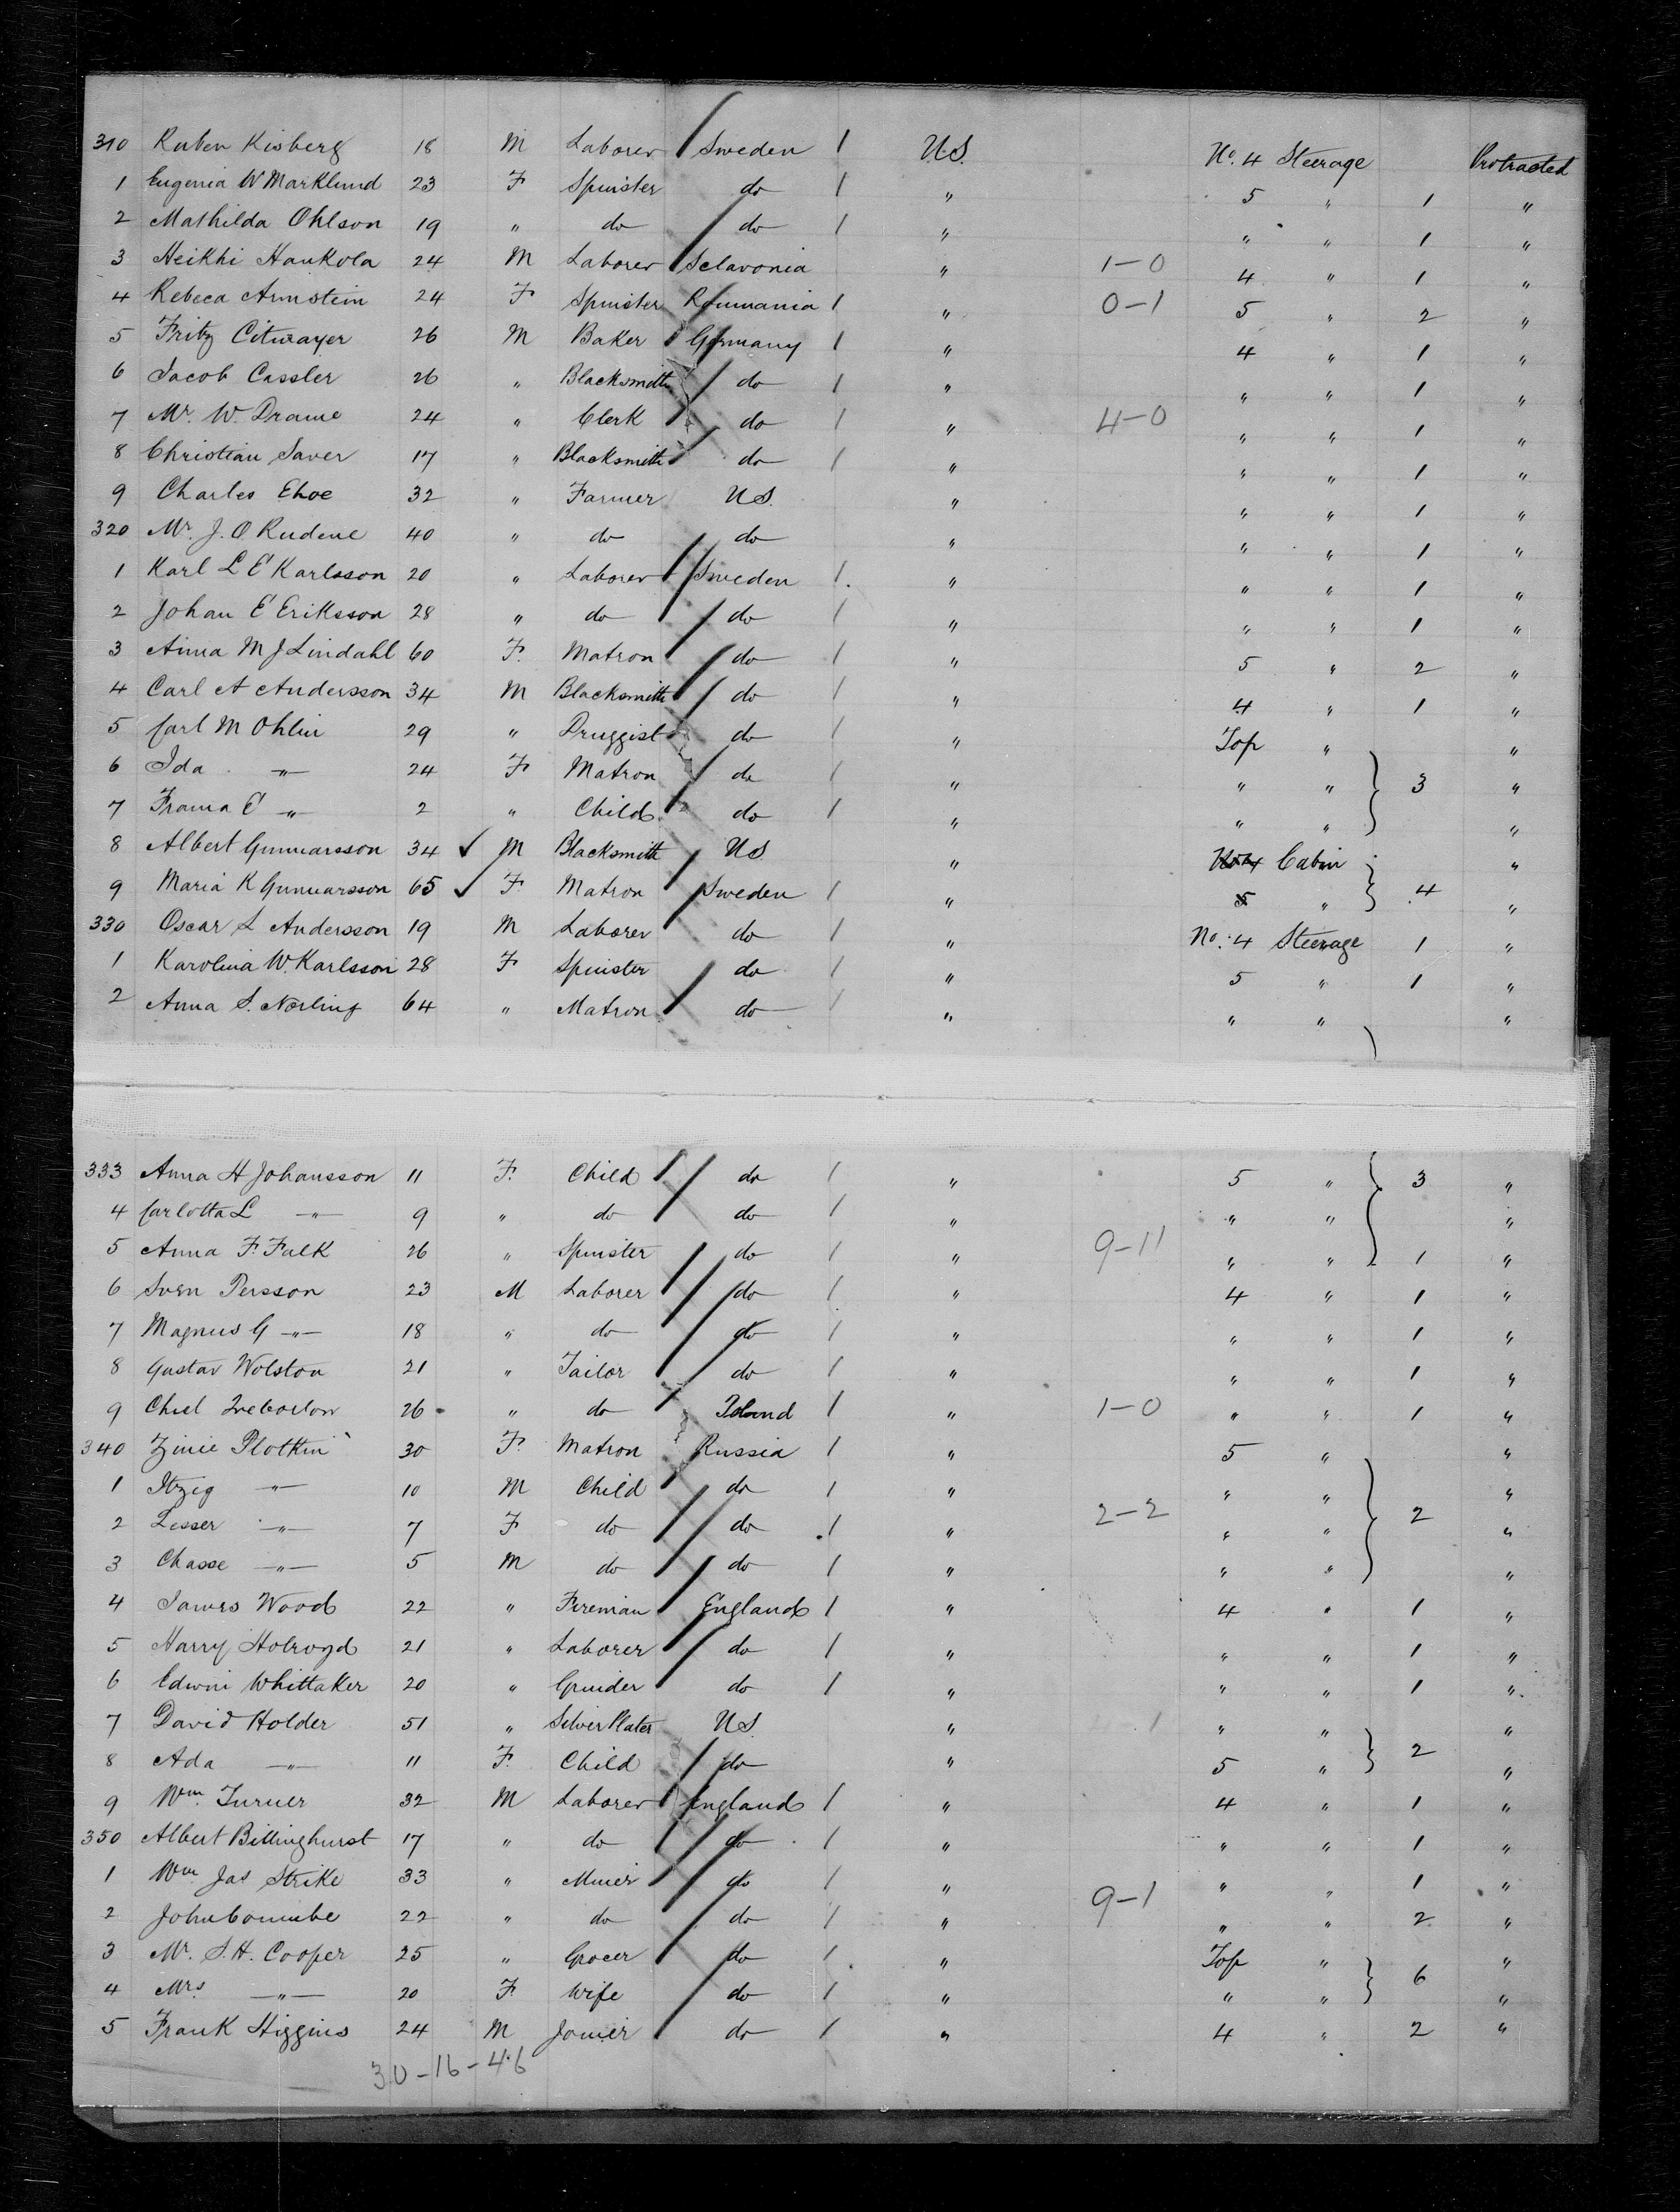 310 Ruben Kisberg 18 M Laborer Sweden 1 U.S. No. 4 Steerage Protracted
1 Eugenia W Marklund 23 F Spinster do 1 " 5 " 1 "
2 Mathilda Ohlson 19 " do do 1 " " " 1 "
3 Heikki Haukola 24 M Laborer Sclavonia " 1-0 4 " 1 "
4 Rebeca Arnstein 24 F Spinster Roumania 1 " 0-1 5 " 2 "
5 Fritz Citwayer 26 M Baker Germany 1 " 4 " 1 "
6 Jacob Cassler 26 " Blacksmith do 1 " " " 1 "
7 Mr. W. Drame 24 " Clerk do 1 " 4-0 " " 1 "
8 Christian Saver 17 " Blacksmith do 1 " " " 1 "
9 Charles Ehoe 32 " Farmer U.S. " " " 1 "
320 Mr. J. O Rudene 40 " do do " " " 1 "
1 Karl L E Karlsson 20 " Laborer Sweden 1 " " " 1 "
2 Johan E Eriksson 28 " do do 1 " " " 1 "
3 Anna M J Lindahl 60 F. Matron do 1 " 5 " 2 "
4 Carl A Andersson 34 M Blacksmith do 1 " 4 " 1 "
5 Carl M Ohlin 29 " Druggist do 1 " Top " "
6 Ida " 24 F Matron do 1 " " " 3 "
7 E " 2 " Child do 1 " " " "
8 Albert Gunnarsson 34 ✓ M Blacksmith US " No 4 Cabin "
9 Maria K Gunnarsson 65 ✓ F. Matron Sweden 1 " 5 " 4 "
330 Oscar L Andersson 19 M Laborer do 1 " No. 4 Steerage 1 "
1 Karolina W. Karlsson 28 F Spinster do 1 " 5 " 1 "
2 Anna S. Norling 64 " Matron do 1 " " " "
333 Anna H Johansson 11 F. Child do 1 " 5 " 3 "
4 Carlotta L " 9 " do do 1 " " " "
5 Anna F. Falk 26 " Spinster do 1 " 9-11 " " 1 "
6 Sven Persson 23 M Laborer do 1 " 4 " 1 "
7 Magnus G " 18 " do do 1 " " " 1 "
8 Gustav Wolston 21 " Tailor do 1 " " " 1 "
9 Chiel 26 " do Poland 1 " 1-0 " " 1 "
340 Zinie Plotkin 30 F. Matron Russia 1 " 5 " "
1 Itzig " 10 M Child do 1 " " " "
2 Lesser " 7 F do do 1 " 2-2 " " 2 "
3 Chasse " 5 M do do 1 " " " "
4 James Wood 22 " Fireman England 1 " 4 " 1 "
5 Harry Holroyd 21 " Laborer do 1 " " " 1 "
6 Edwin Whittaker 20 " Grinder do 1 " " " 1 "
7 David Holder 51 " Silver Plater U.S " 1 " " "
8 Ada " 11 F. Child do " 5 " 2 "
9 Wm. Turner 32 M Laborer England 1 " 4 " 1 "
350 Albert Billinghurst 17 " do do 1 " " " 1 "
1 Wm Jas Strike 33 " Miner do 1 " " " 1 "
2 John Coumbe 22 " do do 1 " 9-1 " " 2 "
3 Mr. S. H. Cooper 25 " Grocer do 1 " Top " 6 "
4 Mrs " 20 F. Wife do 1 " " " "
5 Frank Higgins 24 M Joiner do 1 " 4 " 2 "
30-16-46